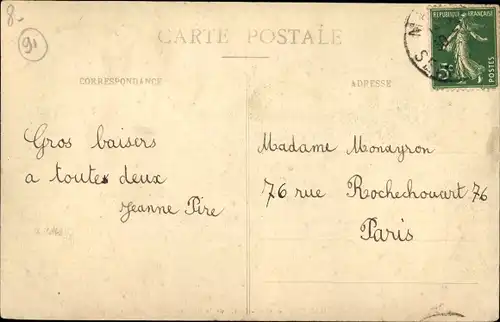 8-
91
CARTE POSTALE
CORRESPONDANCE
ADRESSE
REPUBLIQUE FRANÇAISE
POSTES
5c
Gros baisers
a toutes deux
Jeanne Pire
Madame Monayron
76 rue Rochechouart 76
Paris